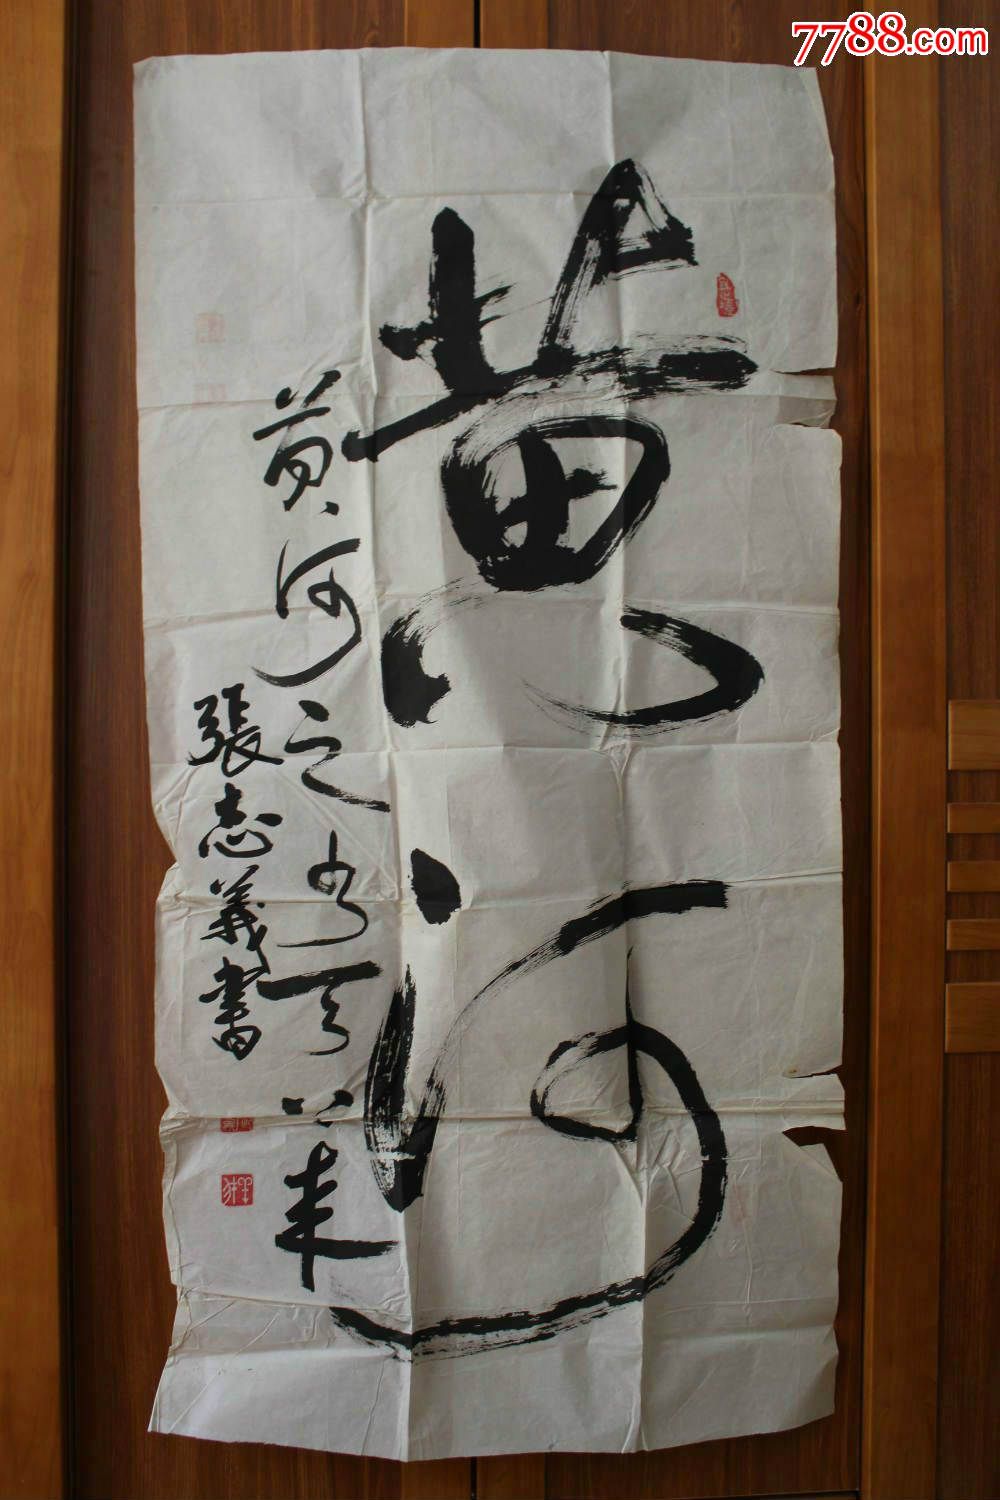 7788.com
黄河
黄河之水天上来
張志義書